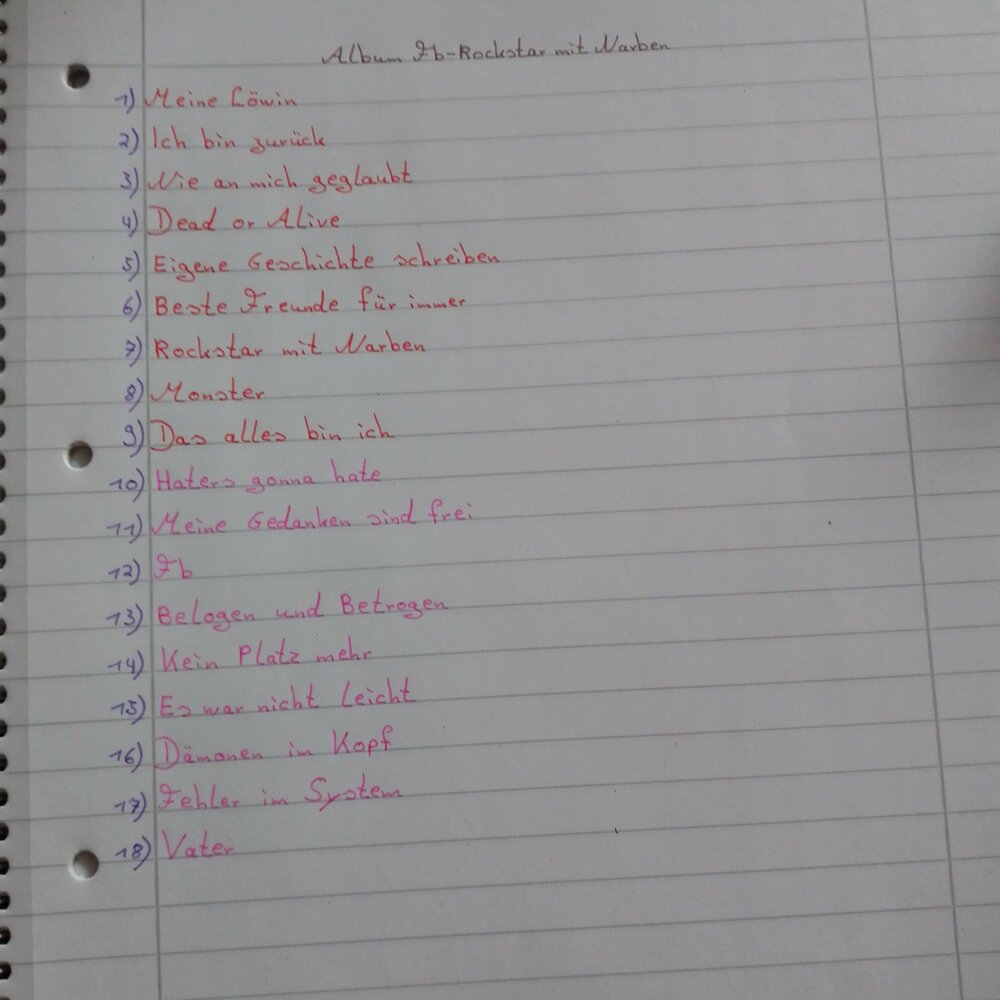 Album Fb-Rockstar mit Narben
1) Meine Löwin
2) Ich bin zurück
3) Nie an mich geglaubt
4) Dead or Alive
5) Eigene Geschichte schreiben
6) Beste Freunde für immer
7) Rockstar mit Narben
8) Monster
9) Das alles bin ich
10) Haters gonna hate
11) Meine Gedanken sind frei
12) Fb
13) Belogen und Betrogen
14) Kein Platz mehr
15) Es war nicht leicht
16) Dämonen im Kopf
17) Fehler im System
18) Vater